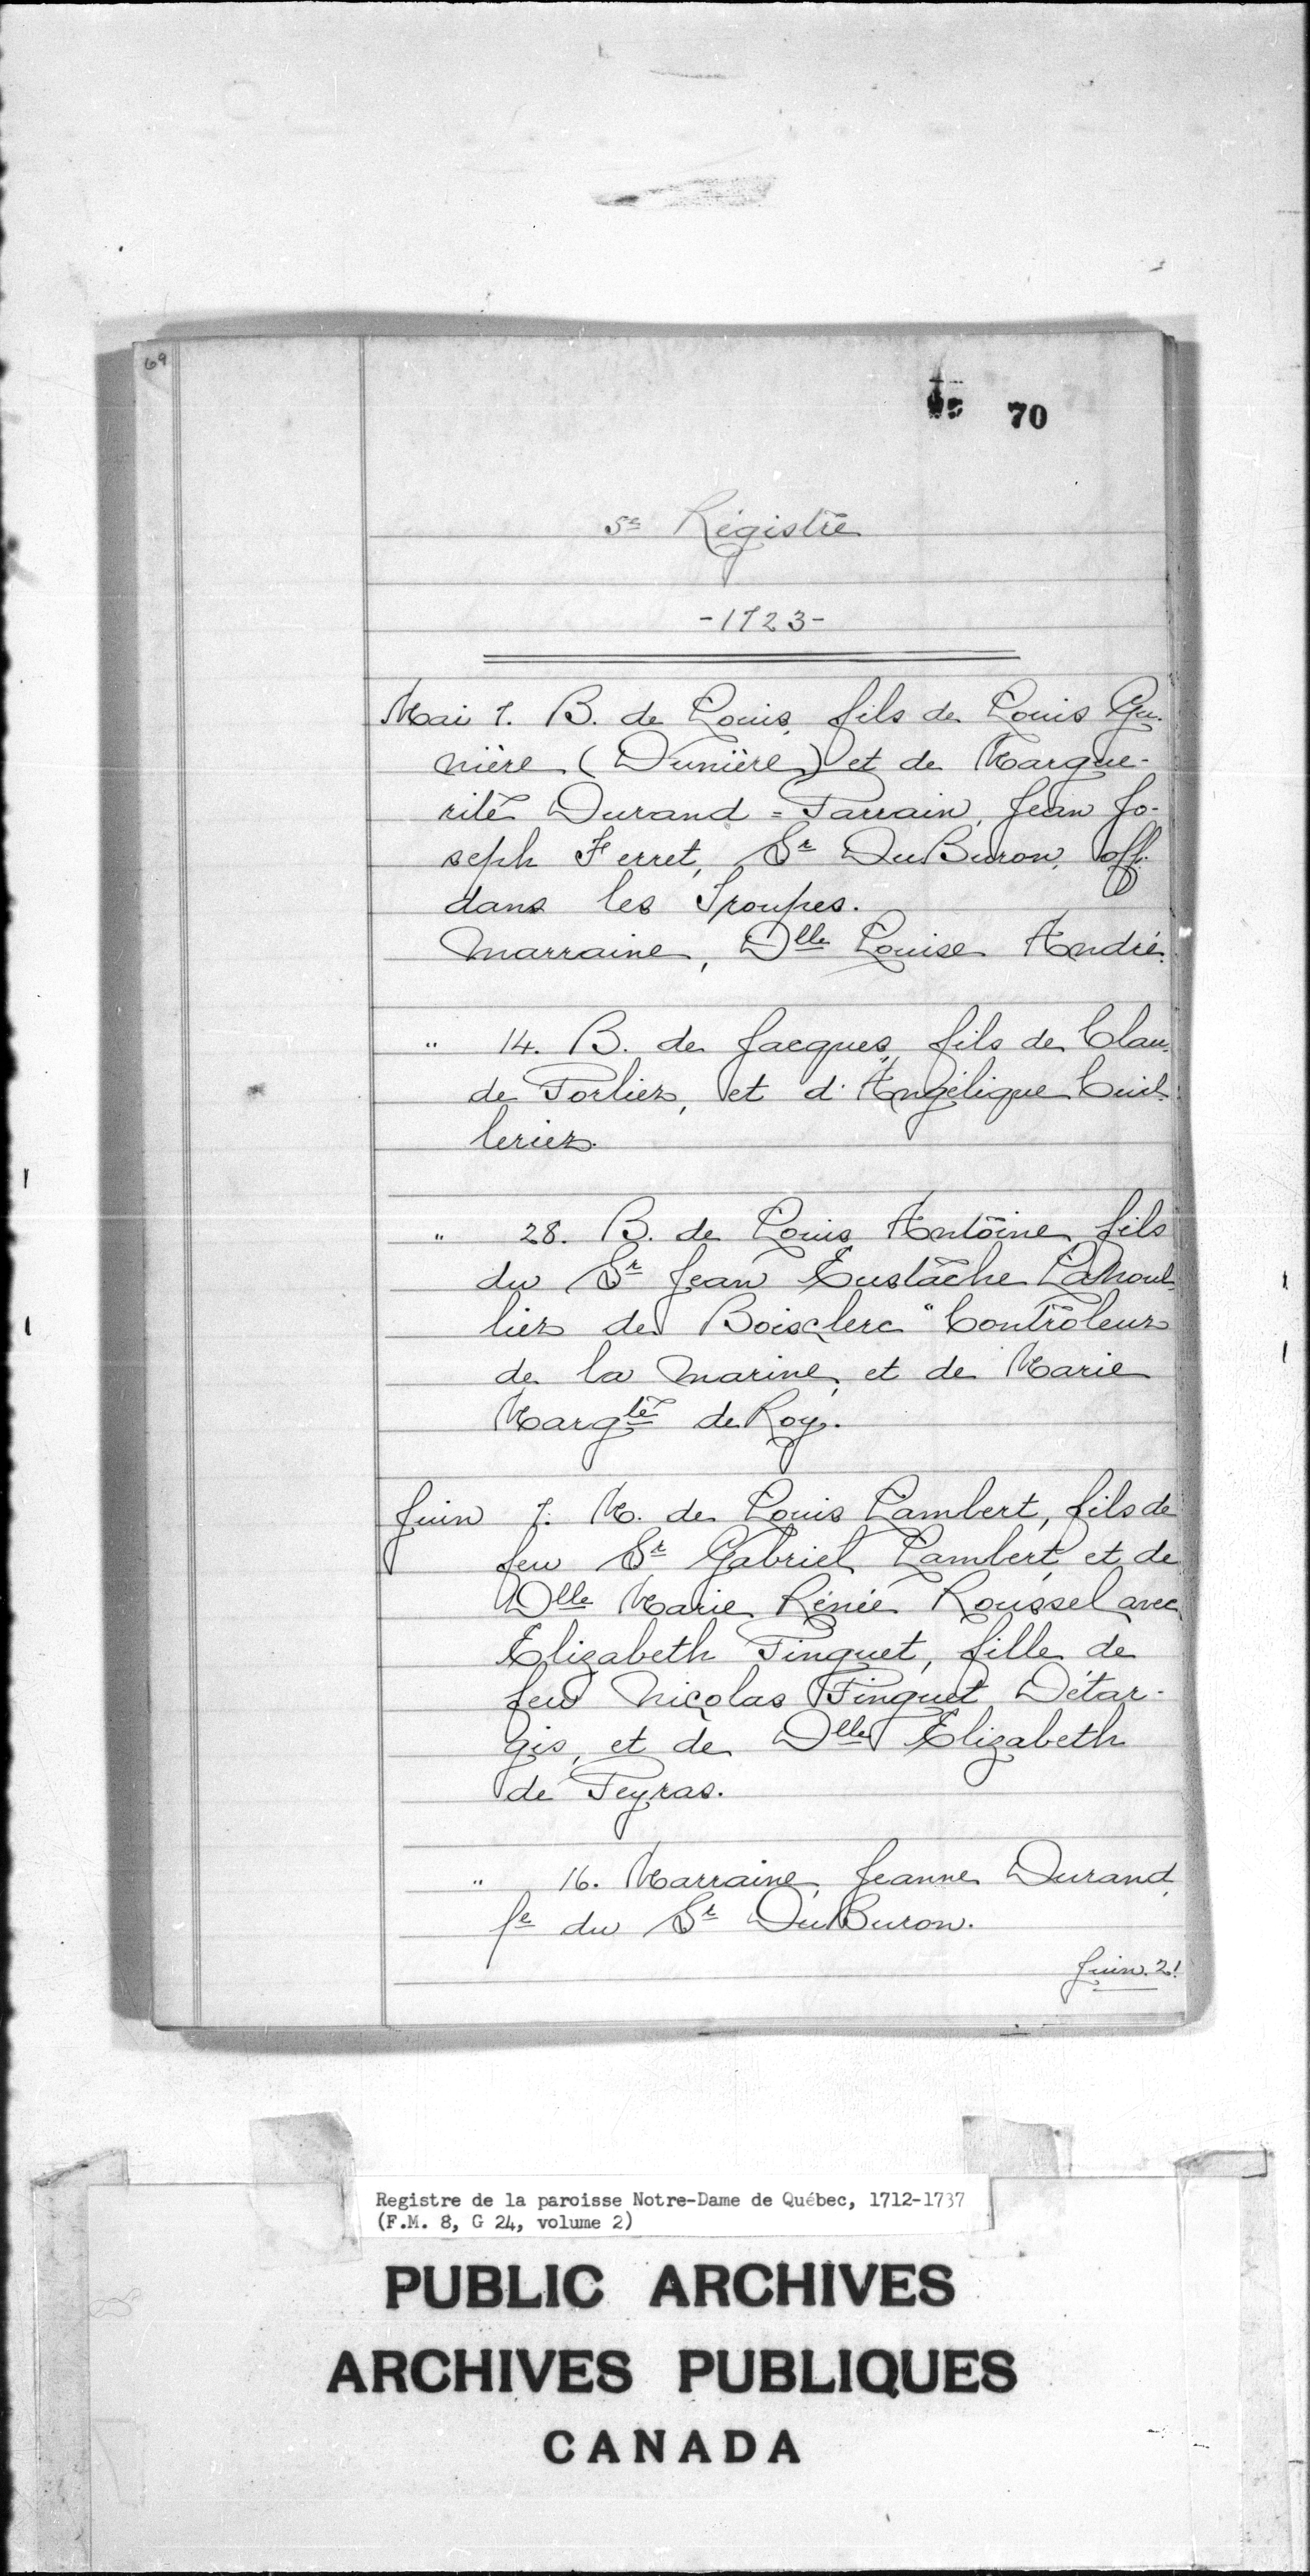 69
70
5e Régistre
-1723-
Mai 7. B. de Louis, fils de Louis Gu-
nière (Dunière) et de Margue-
rite Durand = Parrain, Jean Jo-
seph Ferret, Sr DuBuron, off.
dans les Troupes.
Marraine, Dlle Louise André.
" 14. B. de Jacques, fils de Clau-
de Porlier, et d'Angélique Cuil-
lerier.
" 28. B. de Louis Antoine, fils
du Sr Jean Eustâche LaNoul-
lier de Boisclerc "Contrôleur
de la Marine, et de Marie
Margte de Roy.
Juin 7. M. de Louis Lambert, fils de
feu Sr Gabriel Lambert, et de
Dlle Marie Rénée Roussel avec
Elizabeth Pinguet, fille de
feu Nicolas Pinguet Détar-
gis, et de Dlle Elizabeth
de Peyras.
" 16. Marraine, Jeanne Durand,
fe du Sr DuBuron.
Juin. 21
Registre de la paroisse Notre-Dame de Québec, 1712-1737
(F.M. 8, G 24, volume 2)
PUBLIC ARCHIVES
ARCHIVES PUBLIQUES
CANADA